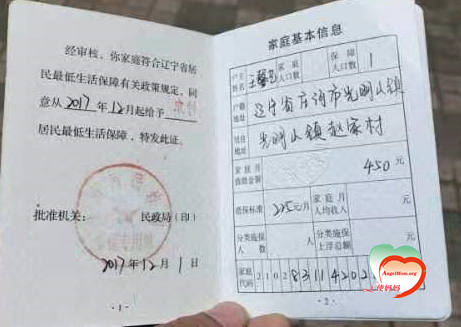 经审核，你家庭符合辽宁省居
民最低生活保障有关政策规定。同
意从2017年12月起给予
居民最低生活保障，特发此证。
批准机关：民政局（印）
2017年12月1日
·1·
家庭基本信息
户主姓名 王 家庭人口数 保障人口数 1
户籍地址 辽宁省庄河市光明山镇
居住地址 光明山镇赵家村
家庭月救助金额 450 元
低保标准 225元/月 家庭月人均收入 元
分类施保人数 人 分类施保上浮总额 元
家庭代码 210283114202
·2·
AngelMom.org
使妈妈